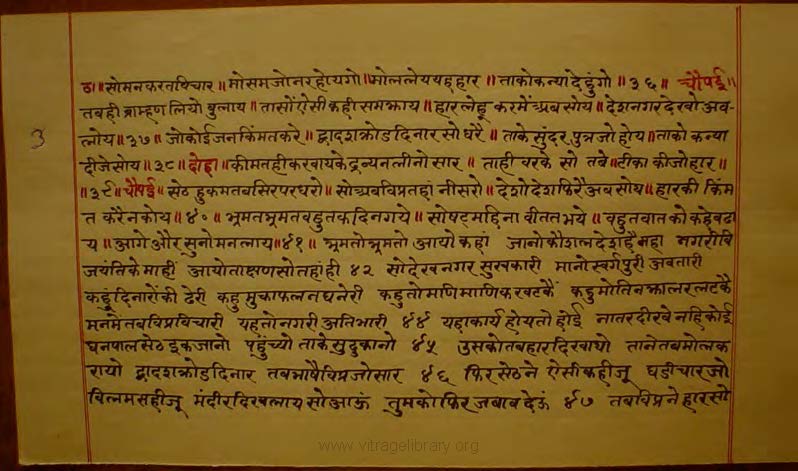 ठा॥सोमनकरतविचार॥मोसमजोनरहोयगो॥मोललेययहहार॥ताकोकन्यादेहुंगो॥३६॥चौपई॥
तबहीब्राम्हणलियोबुलाय॥तासोंऐसीकहीसमझाय॥हारलेहूकरमेंअबसोय॥देशनगरदेखोअव-
लोय॥३७॥जोकोईजनकिंमतकरे॥द्वादशक्रोडदिनारसोधरै॥ताकेसुंदरपुत्रजोहोय॥ताकोकन्या
3
दीजेसोय॥३८॥दोहा॥कीमतहीकरवायकेद्रव्यनलीनोसार॥ताहीवरकेसोतबे॥टीकाकीजोहार॥
॥३९॥चौपई॥सेठहुकमतबसिरपरधरो॥सोअबविप्रतहांनीसरो॥देशोदेशफिरैअबसोय॥हारकीकिंम
तकरैनकोय॥४०॥भ्रमतभ्रमतबहुतकदिनगये॥सोषटमहिनावीततभये॥बहुतबातकोकहेबढा
य॥आगेऔरसुनोमनलाय॥४१॥भ्रमतोभ्रमतोआयोकहां जानोकौशलदेशहैमहा नगरीवि
जयंतिकेमाहीं आयोताक्षणसोतहांही ४२ सोदेखनगरसुखकारी मानोस्वर्गपुरीअवतारी
कहूंदिनारोंकीढेरी कहुमुक्ताफलनघनेरी कहुतोमाणिमाणिकखटकैं कहुमोतिनझालरलटकै
मनमेंतबविप्रविचारी यहतोनगरीअतिभारी ४४ यहाकार्यहोयतोहोई नातरदीखेनहिकोई
धनपालसेठइकजानो पहुंच्योताकेसुदुकानो ४५ उसकोतबहारदिखायो तानेतबमोलक
रायो द्वादशक्रोडदिनार तबभाषैविप्रजोसार ४६ फिरसेठनेऐसीकहीजू घडीचारजो
विलमसहीजू मंदीरदिखलायसोआऊं तुमकोफिरजबाबदेऊं ४७ तबविप्रनेहारसो
www.vitragelibrary.org